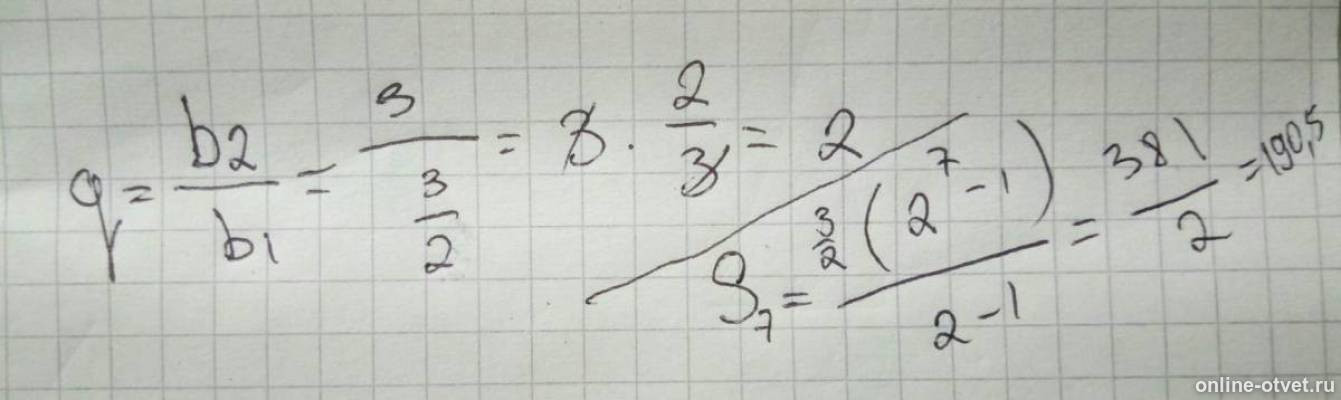 q = b2/b1 = 3/(3/2) = 3 · 2/3 = 2
S₇ = (3/2 (2⁷ - 1))/(2 - 1) = 381/2 = 190,5
online-otvet.ru